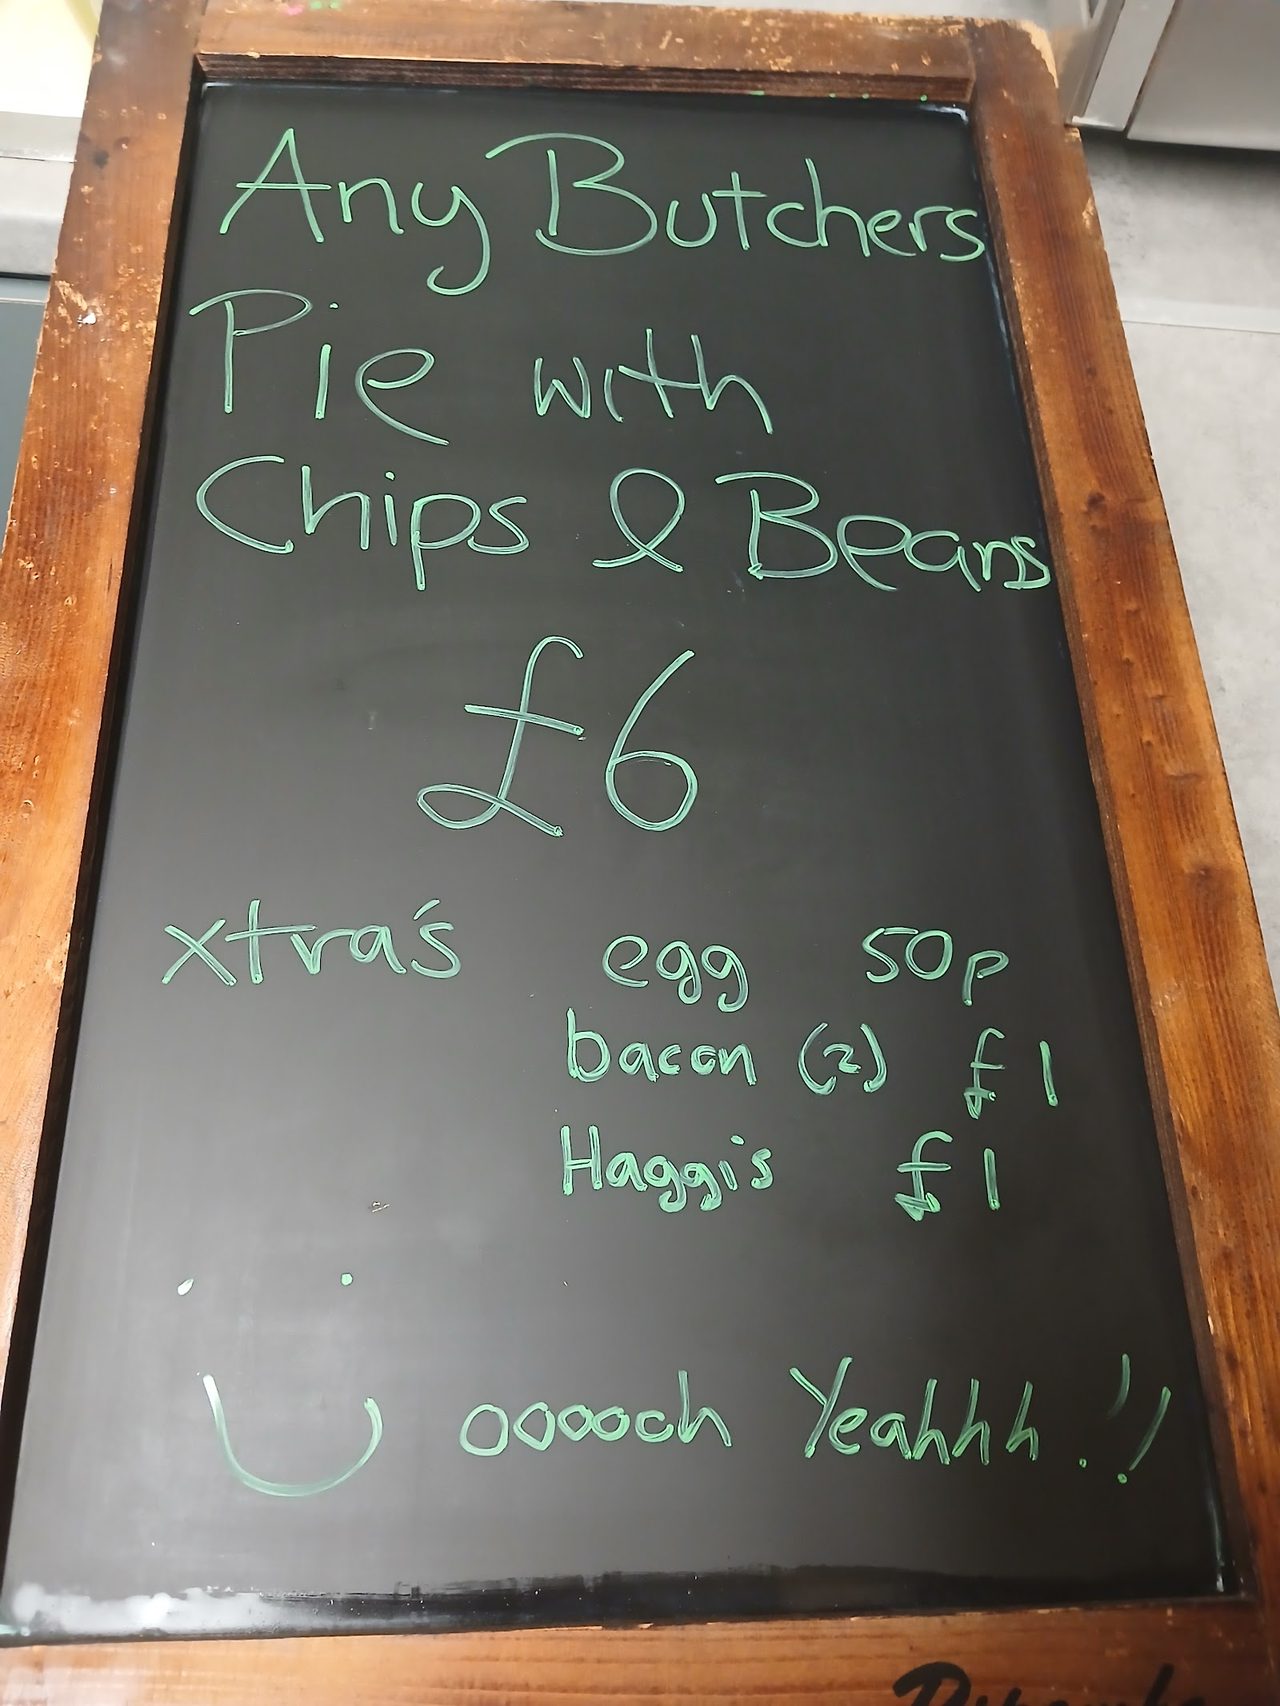 Any Butchers
Pie with
Chips & Beans
£6
xtra's egg 50p
bacon (2) £1
Haggis £1
ooooch Yeahhh!!